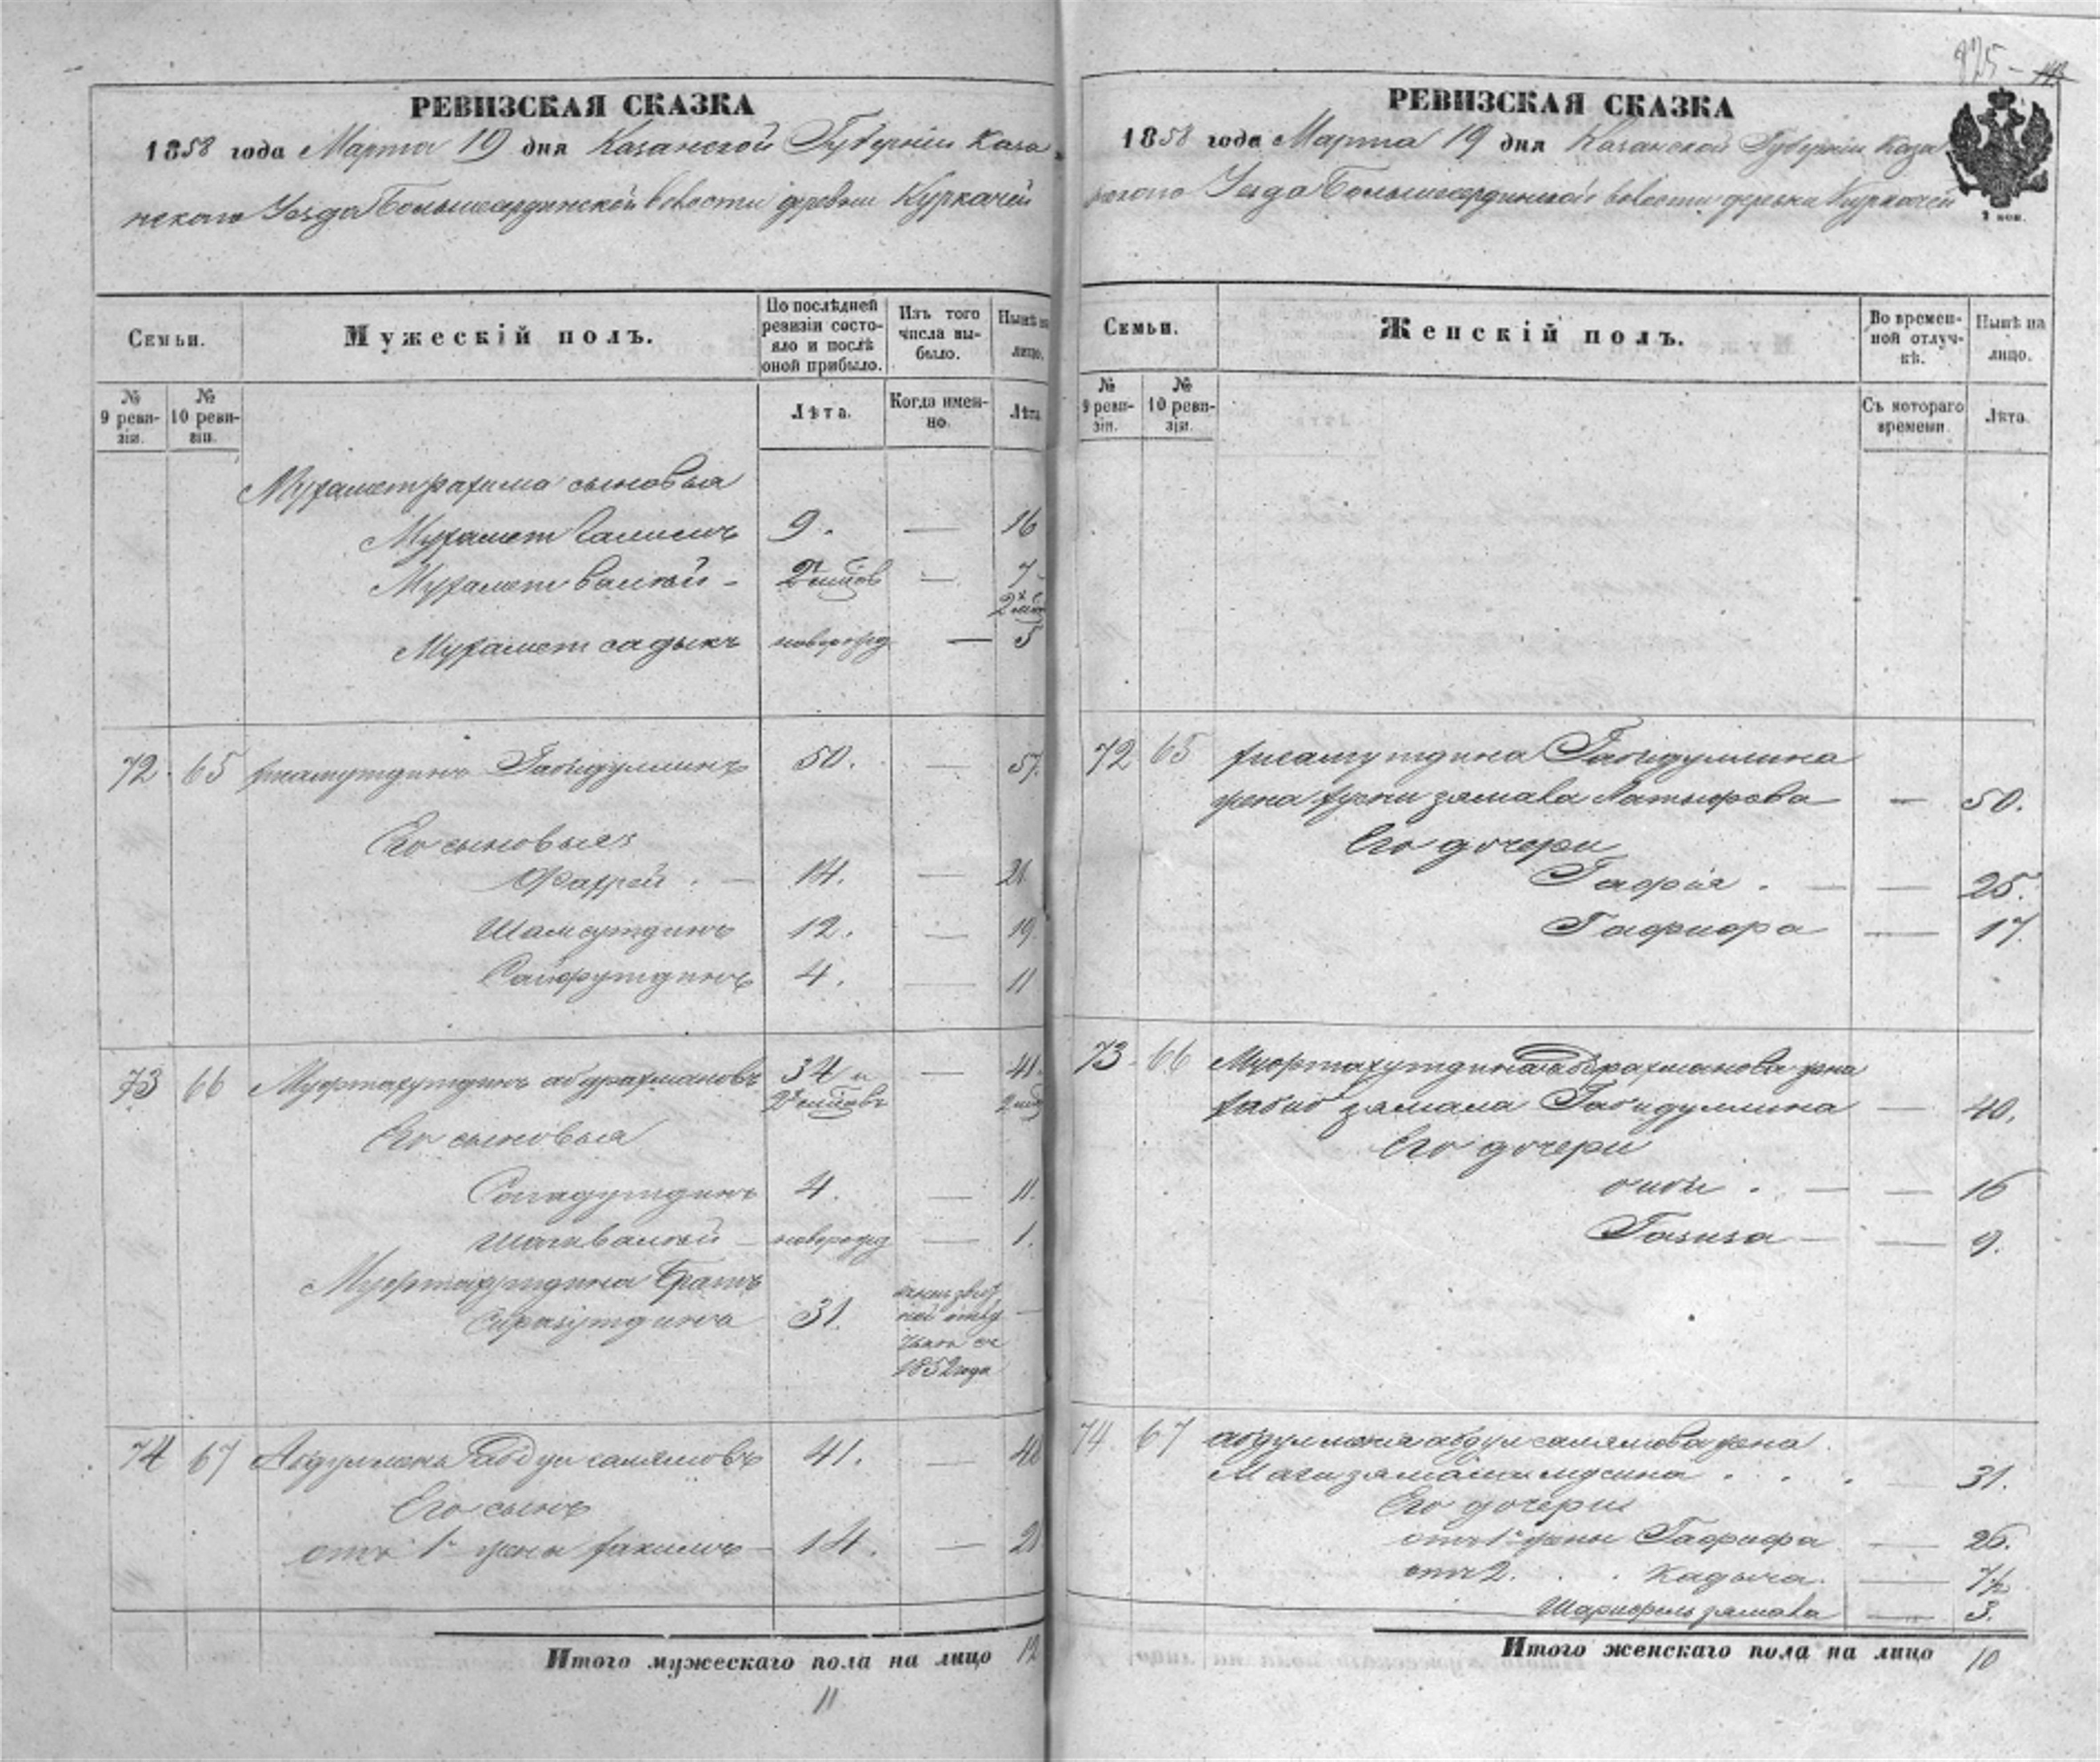 РЕВИЗСКАЯ СКАЗКА
1858 года Марта 19 дня Казанской Губерніи Каза
нскаго Уезда Большесардинской волости деревни Куркачей
Семьи.
Мужескій полъ.
По послѣдней ревизіи состояло и послѣ оной прибыло.
Изъ того числа выбыло.
Нынѣ на лицо.
№ 9 ревизіи.
№ 10 ревизіи.
Лѣта.
Когда именно.
Лѣта
Мухаметрахима сыновья
Мухамет Галимъ 9. — 16
Мухамет валей - — 7
Мухамет садыкъ новорожд — 5
72 65 Хисамутдинъ Габидуллинъ 50. — 57.
Его сыновья
Фахрей 14. — 21.
Шамсутдинъ 12. — 19.
Сайфутдинъ 4. — 11
73 66 Мифтахутдинъ абдрахмановъ 34 и — 41
Его сыновья
Садутдинъ 4. — 11.
Шагивалей — новорожд — 1.
Мифтахутдина братъ
Сиразутдинъ 31. 1852 года —
74 67 Абдулменъ абдулсалямовъ 41. — 48
Его сынъ
отъ 1й жены Хакимъ — 14. — 21
Итого мужескаго пола на лицо 12
11
825 —
РЕВИЗСКАЯ СКАЗКА
1858 года Марта 19 дня Казанской Губерніи Каза
нскаго Уезда Большесардинской волости деревни Куркачей
Семьи.
Женскій полъ.
Во временной отлучкѣ.
Нынѣ на лицо.
№ 9 ревизіи.
№ 10 ревизіи.
Съ котораго времени
Лѣта.
72 65 Хисамутдина Габидуллина
жена Хусни зямала Батырова — 50.
Его дочери
Гафія . — — 25.
Гафифа — 17.
73 66 Мифтахутдина абдрахманова жена
Хабиб зямала Габидуллина — 40.
Его дочери
— — 16
Газиза — — 9.
74 67 абдулменя абдулсалямова жена
Маги зямала мусина . . . — 31.
Его дочери
отъ 1й жены Гафифа — 26.
отъ 2. . . Кадыча. — 7½
— 3.
Итого женскаго пола на лицо 10